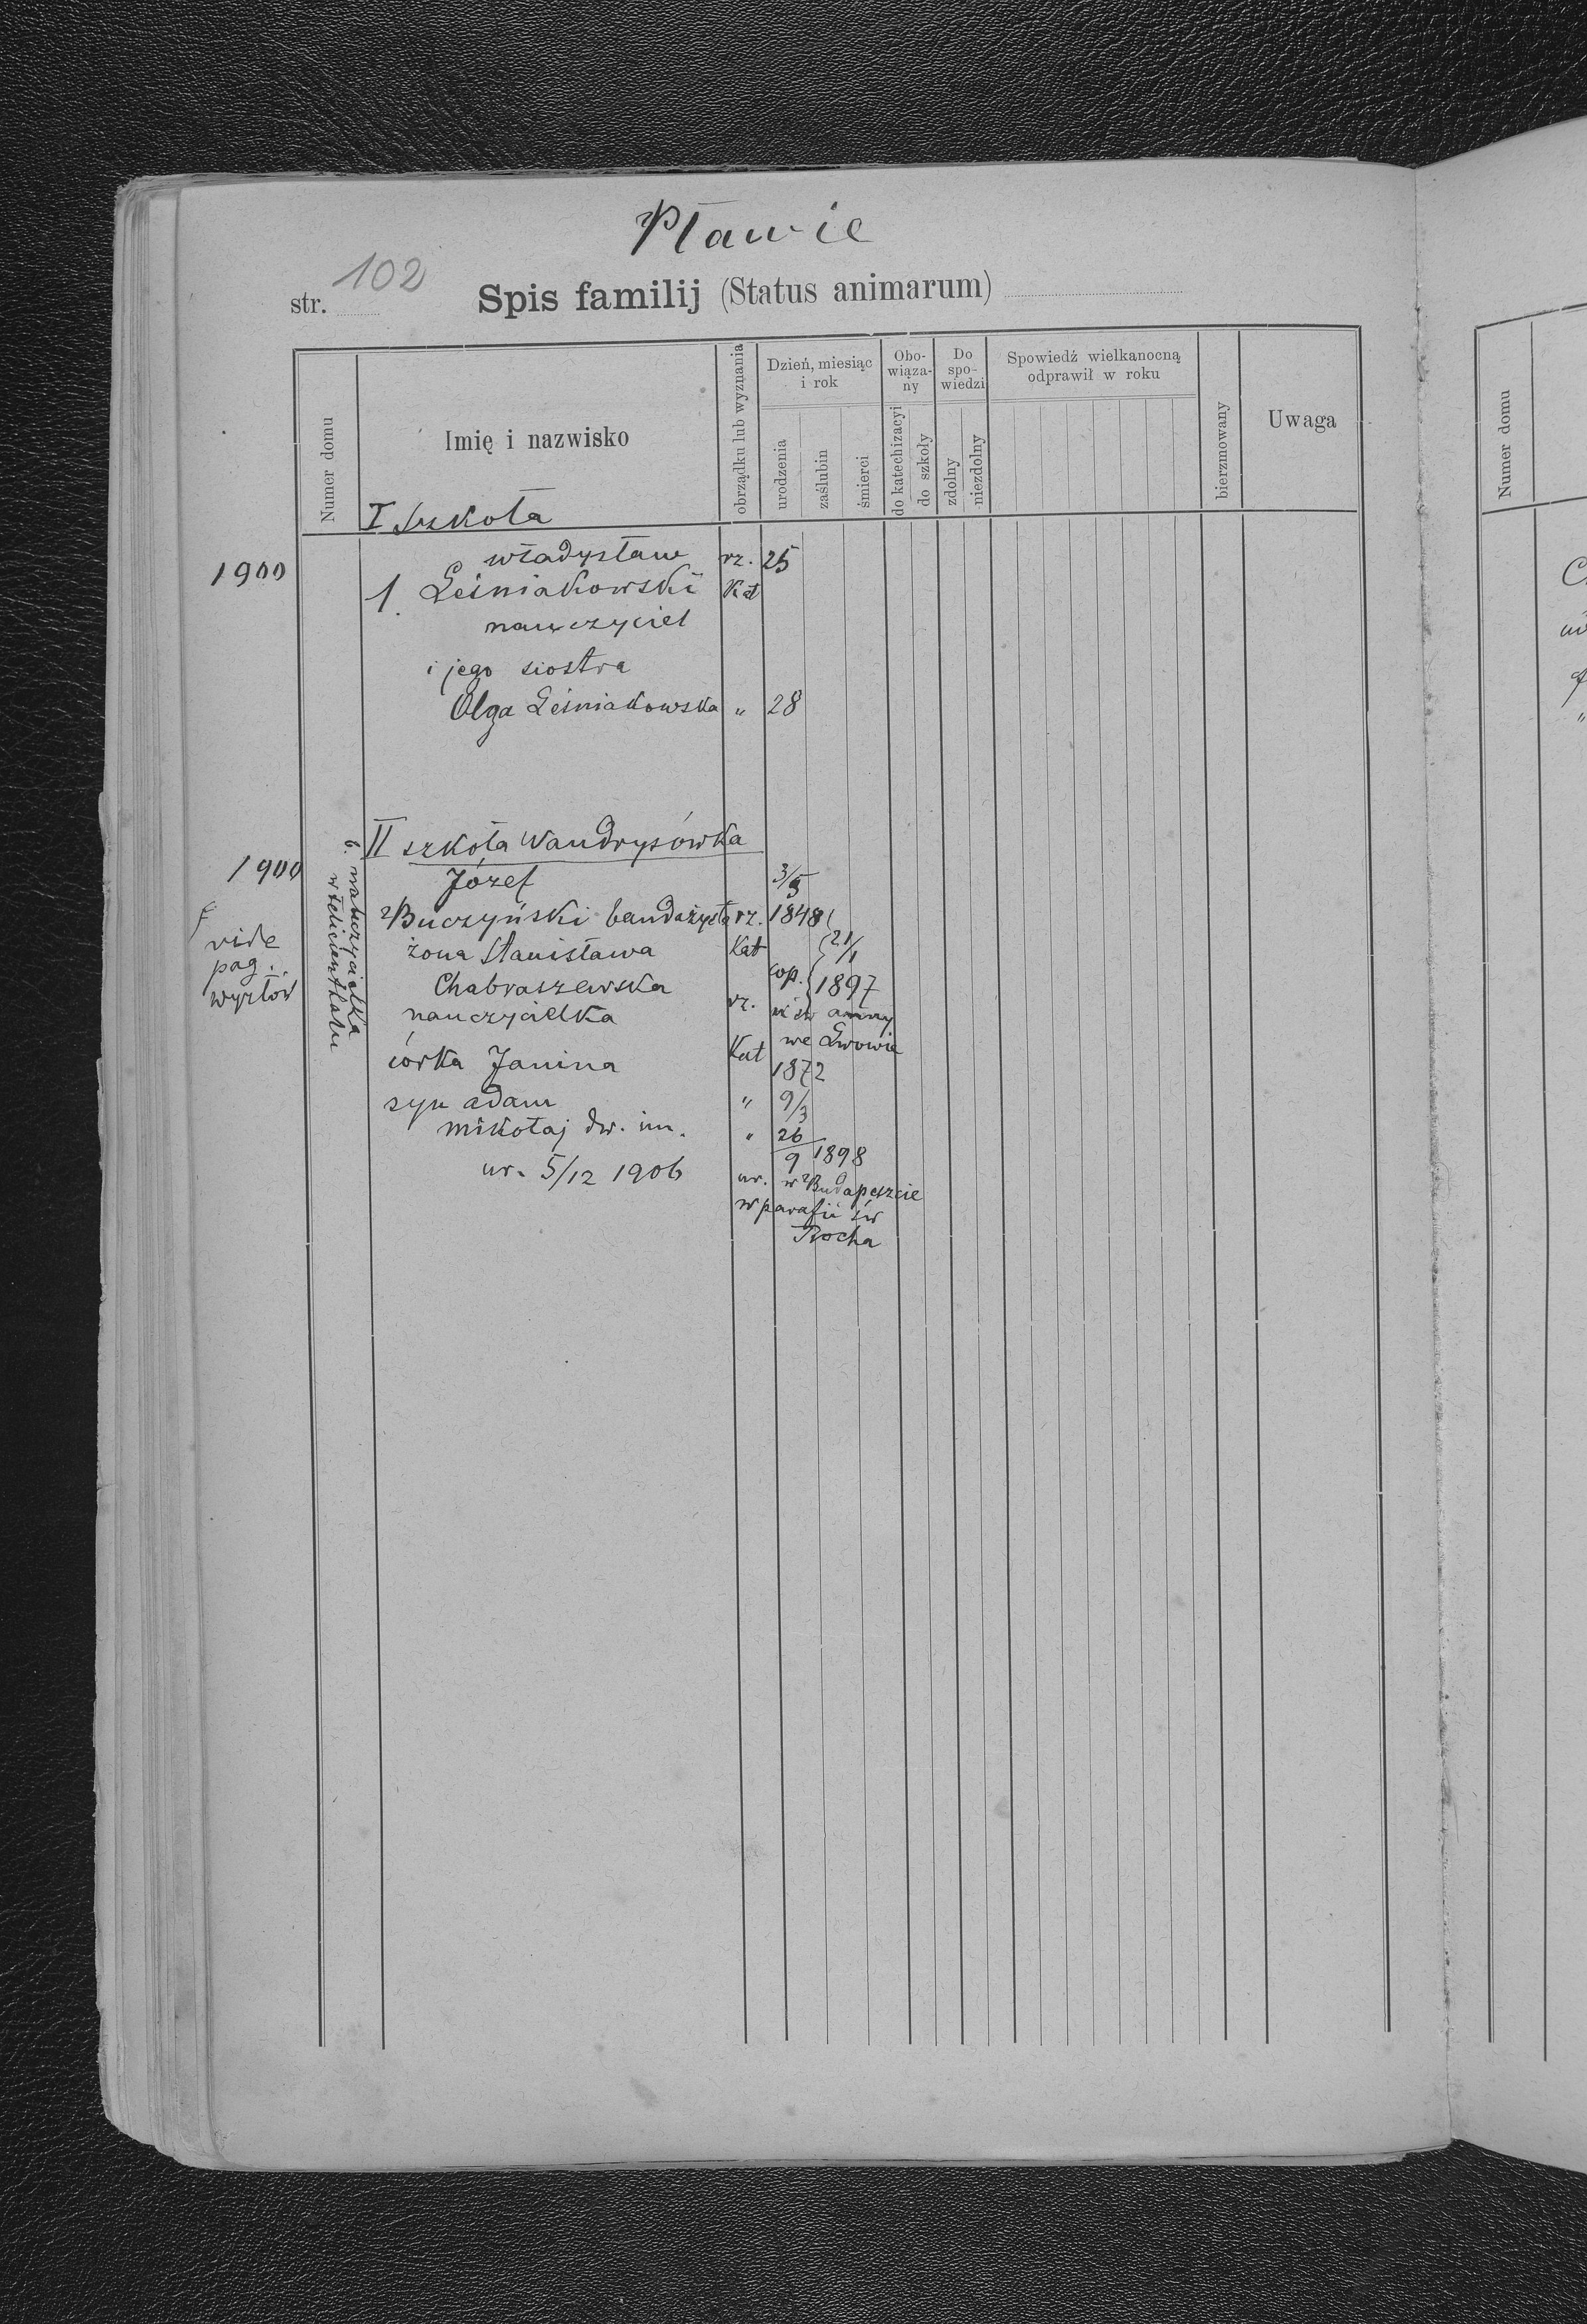 Pławie
str. 102 Spis familij (Status animarum)
Numer domu
Imię i nazwisko
obrządku lub wyznania
Dzień, miesiąc i rok
urodzenia
zaślubin
śmierci
Obo-wiąza-ny
do katechizacyi
do szkoły
Do spo-wiedzi
zdolny
niezdolny
Spowiedź wielkanocną odprawił w roku
bierzmowany
Uwaga
Numer domu
I Szkoła
Władysław rz. 25
1900 1. Leśniakowski Kat
nauczyciel
i jego siostra
Olga Leśniakowska „ 28
II szkoła Wandrysówka
1900 Józef 3/5
Buczyński bandażysta rz. 1848
vide żona Stanisława Kat 21/1
pag. Chabraszewska cop. 1897
wyżłów nauczycielka rz. w św anny
we Lwowie
córka Janina Kat 1872
syn adam „ 9/3
mikołaj dw. im. „ 26/9 1898
ur. 5/12 1906 ur. w Budapeszcie
w parafii św
Rocha
b. nauczycielka